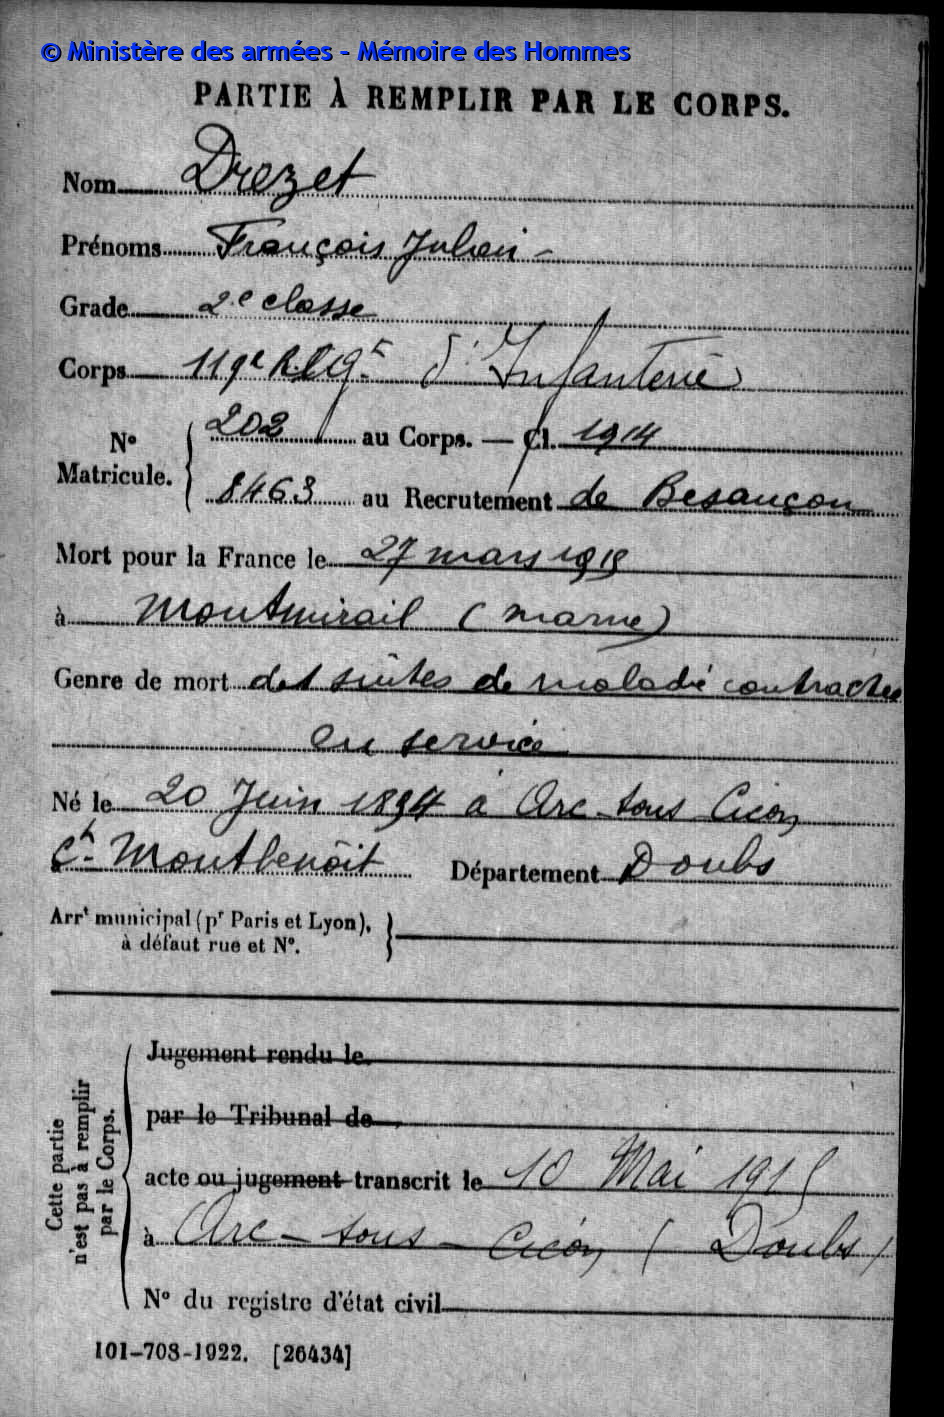 © Ministère des armées - Mémoire des Hommes
PARTIE À REMPLIR PAR LE CORPS.
Nom Drezet
Prénoms François Julien -
Grade 2e classe
Corps 119e Rég.t d'Infanterie
N° Matricule. 202 au Corps. — Cl. 1914
8463 au Recrutement de Besançon
Mort pour la France le 27 mars 1915
à Montmirail (Marne)
Genre de mort des suites de maladie contractée
en service
Né le 20 Juin 1894 à Arc-sous Cicon
Ct. Montbenoît Département Doubs
Arrt municipal (pr Paris et Lyon),
à défaut rue et N°.
Jugement rendu le
par le Tribunal de
acte ou jugement transcrit le 10 Mai 1915
à Arc-sous-Cicon (Doubs)
N° du registre d'état civil
Cette partie
n'est pas à remplir
par le Corps.
101-708-1922. [26434]